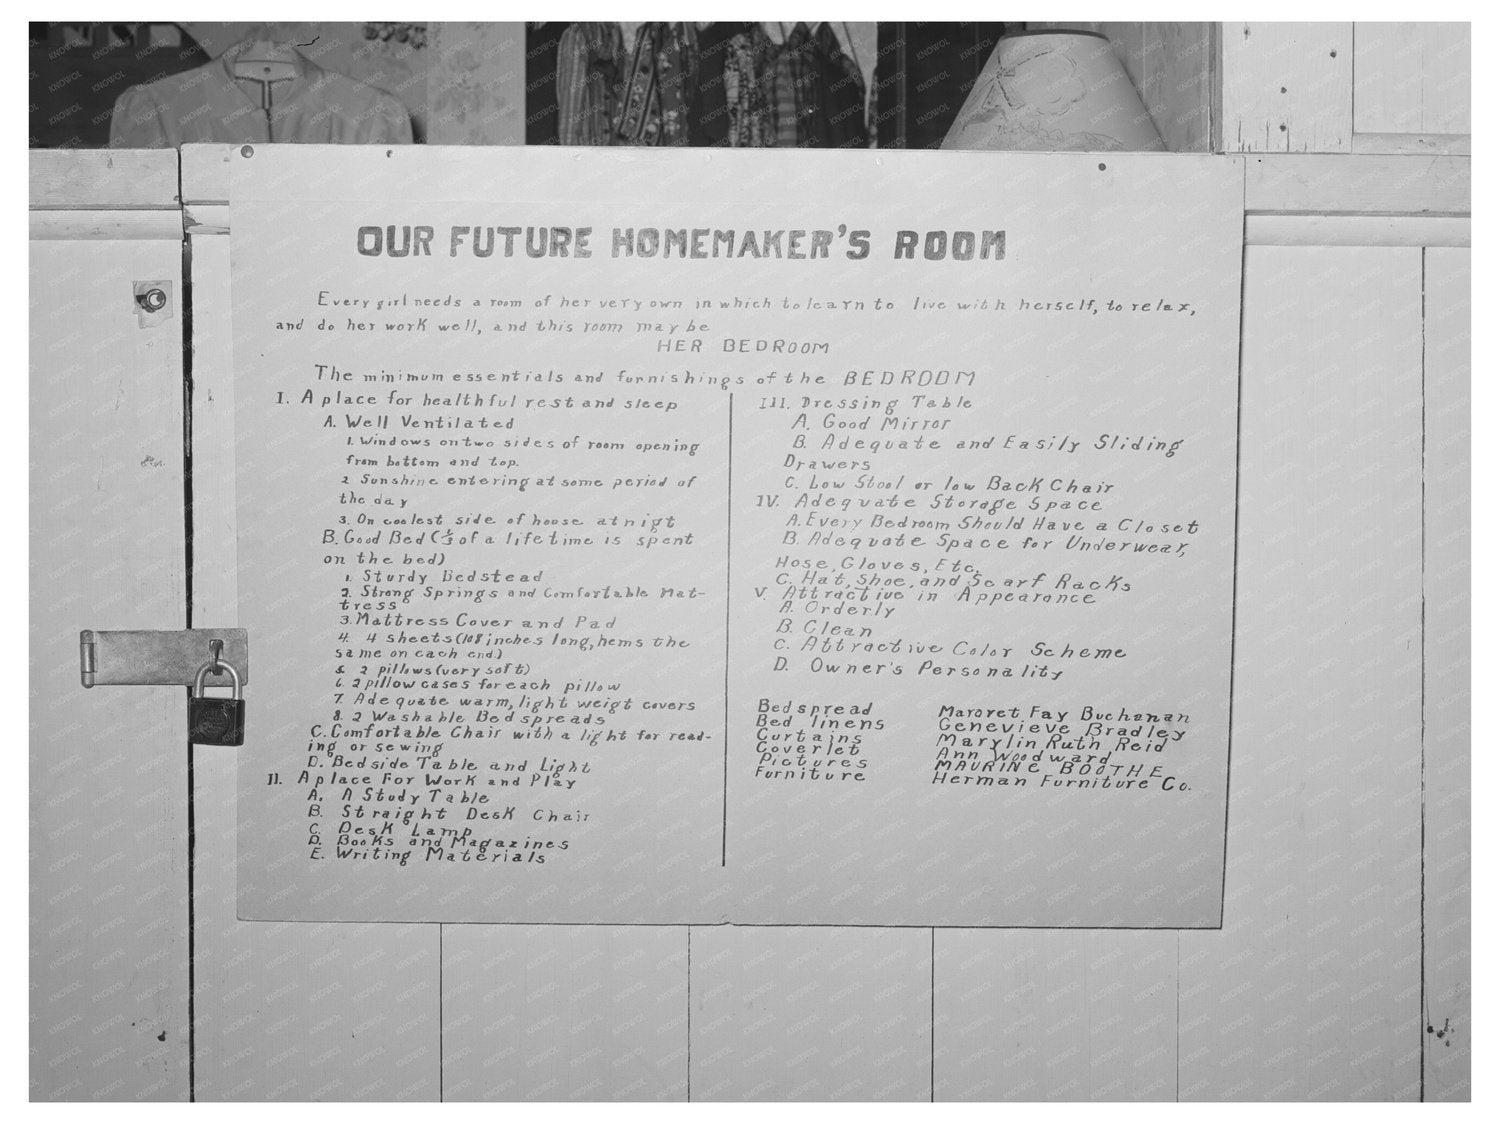 OUR FUTURE HOMEMAKER'S ROOM
Every girl needs a room of her very own in which to learn to live with herself, to relax,
and do her work well, and this room may be
HER BEDROOM
The minimum essentials and furnishings of the BEDROOM
I. A place for healthful rest and sleep
A. Well Ventilated
1. Windows on two sides of room opening
from bottom and top.
2 Sunshine entering at some period of
the day
3. On coolest side of house at nigt
B. Good Bed (⅓ of a lifetime is spent
on the bed)
1. Sturdy Bedstead
2. Strong Springs and Comfortable Mat-
tress
3. Mattress Cover and Pad
4. 4 sheets (108 inches long, hems the
same on each end.)
5. 2 pillows (very soft)
6. 2 pillow cases for each pillow
7. Adequate warm, light weigt covers
8. 2 Washable Bedspreads
C. Comfortable Chair with a light for read-
ing or sewing
D. Bedside Table and Light
II. A place For Work and Play
A. A Study Table
B. Straight Desk Chair
C. Desk Lamp
D. Books and Magazines
E. Writing Materials
III. Dressing Table
A. Good Mirror
B. Adequate and Easily Sliding
Drawers
C. Low Stool or low Back Chair
IV. Adequate Storage Space
A. Every Bedroom Should Have a Closet
B. Adequate Space for Underwear,
Hose, Gloves, Etc.
C. Hat, Shoe, and Scarf Racks
V. Attractive in Appearance
A. Orderly
B. Clean
C. Attractive Color Scheme
D. Owner's Personality
Bedspread Margret Fay Buchanan
Bed linens Genevieve Bradley
Curtains Marylin Ruth Reid
Coverlet Ann Woodward
Pictures MAURINE BOOTHE
Furniture Herman Furniture Co.